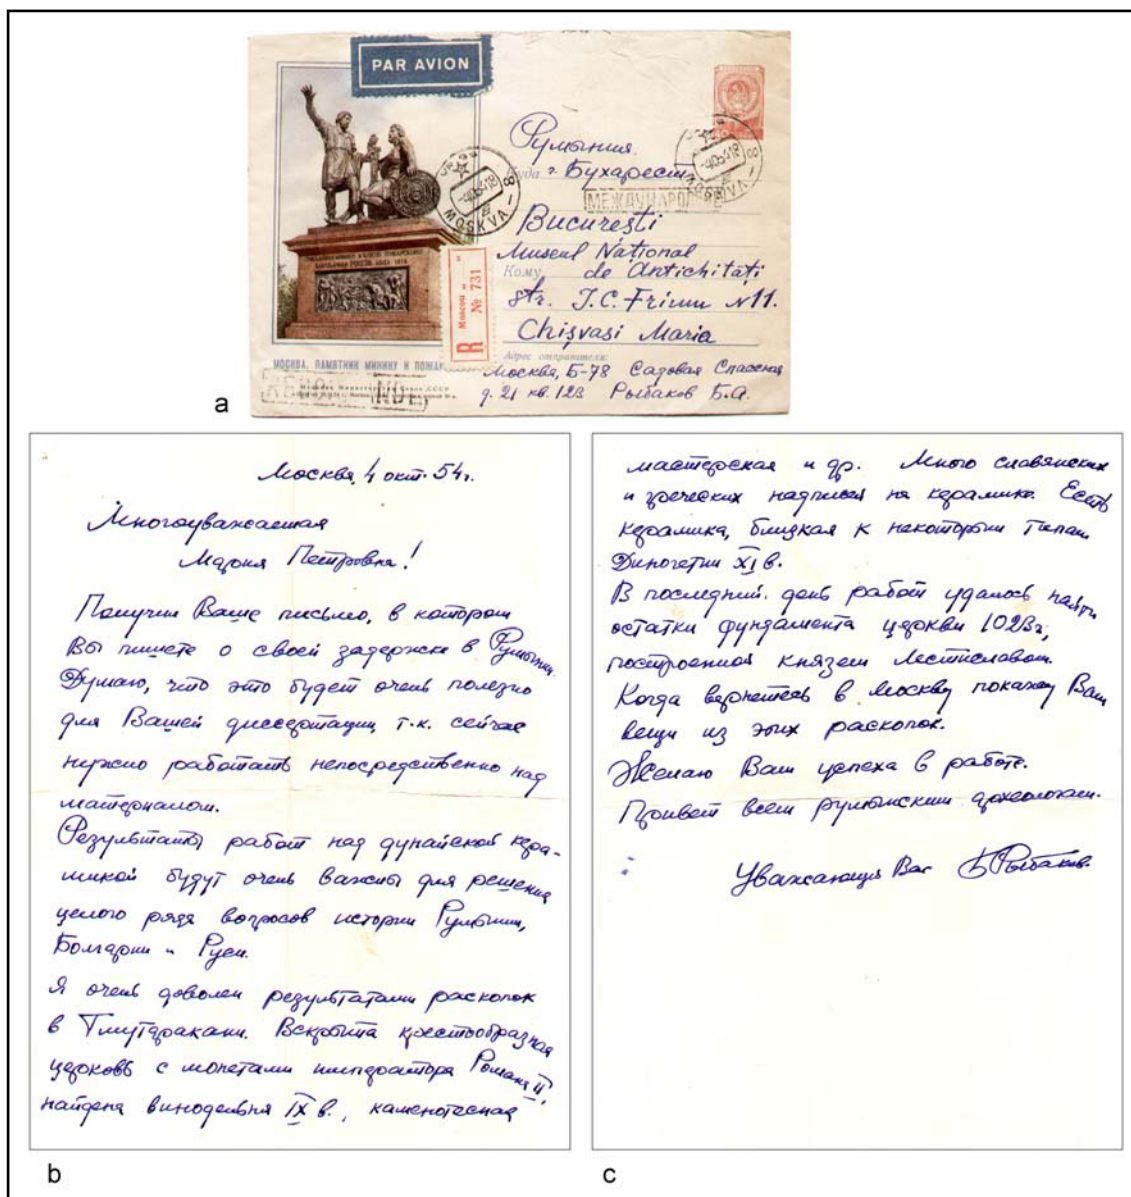 PAR AVION
Румыния
Куда г. Бухарест
МЕЖДУНАРО
București
Museul Național
Кому de Antichități
str. I.C. Frimu N 11.
Chișvasi Maria
Адрес отправителя:
Москва, Б-78 Садовая Спасская
д. 21 кв. 123 Рыбаков Б.А.
MOSKVA - 8
MOSKVA - 8
R Moscou
№ 731
МОСКВА. ПАМЯТНИК МИНИНУ И ПОЖАР
a
Москва, 4 окт. 54г.
Многоуважаемая
Мария Петровна!
Получил Ваше письмо, в котором
Вы пишете о своей задержке в Румынии.
Думаю, что это будет очень полезно
для Вашей диссертации, т.к. сейчас
нужно работать непосредственно над
материалом.
Результаты работ над дунайской кера-
микой будут очень важны для решения
целого ряда вопросов истории Румынии,
Болгарии и Руси.
Я очень доволен результатами раскопок
в Тмутаракани. Вскрыта крестообразная
церковь с монетами императора Романа II,
найдена винодельня IX в., каменотесная
b
мастерская и др. Много славянских
и греческих надписей на керамике. Есть
керамика, близкая к некоторым типам
Диногетии XI в.
В последний день работ удалось найти
остатки фундамента церкви 1023г.,
построенной князем Мстиславом.
Когда вернетесь в Москву покажу Вам
вещи из этих раскопок.
Желаю Вам успеха в работе.
Привет всем румынским археологам.
Уважающий Вас Б Рыбаков.
c